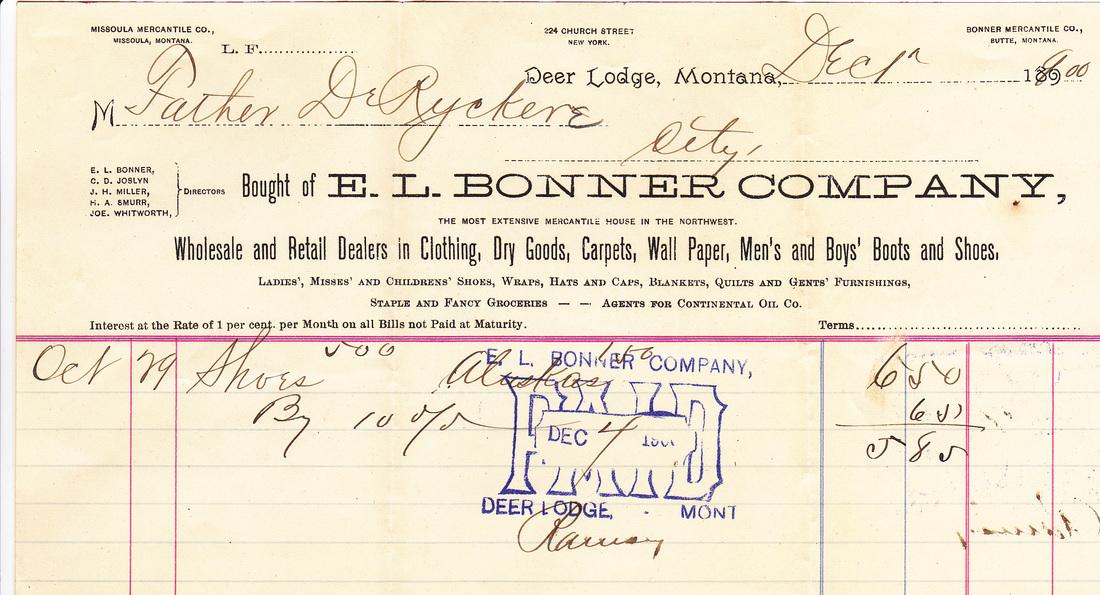 MISSOULA MERCANTILE CO.,
MISSOULA, MONTANA.
L. F.
224 CHURCH STREET
NEW YORK.
BONNER MERCANTILE CO.,
BUTTE, MONTANA.
Deer Lodge, Montana, Dec 1st 1900
M Father DeRyckere
City,
E. L. BONNER,
C. D. JOSLYN
J. H. MILLER,
H. A. SMURR,
JOE. WHITWORTH,
DIRECTORS
Bought of E. L. BONNER COMPANY,
THE MOST EXTENSIVE MERCANTILE HOUSE IN THE NORTHWEST.
Wholesale and Retail Dealers in Clothing, Dry Goods, Carpets, Wall Paper, Men's and Boys' Boots and Shoes,
LADIES', MISSES' AND CHILDRENS' SHOES, WRAPS, HATS AND CAPS, BLANKETS, QUILTS AND GENTS' FURNISHINGS,
STAPLE AND FANCY GROCERIES — — AGENTS FOR CONTINENTAL OIL CO.
Interest at the Rate of 1 per cent. per Month on all Bills not Paid at Maturity.
Terms
Oct 29 Shoes 500 Alaskas 150 6 50
By 10 % 65
5 85
E. L. BONNER COMPANY,
PAID
DEC 4 1900
DEER LODGE, MONT
Ramsay